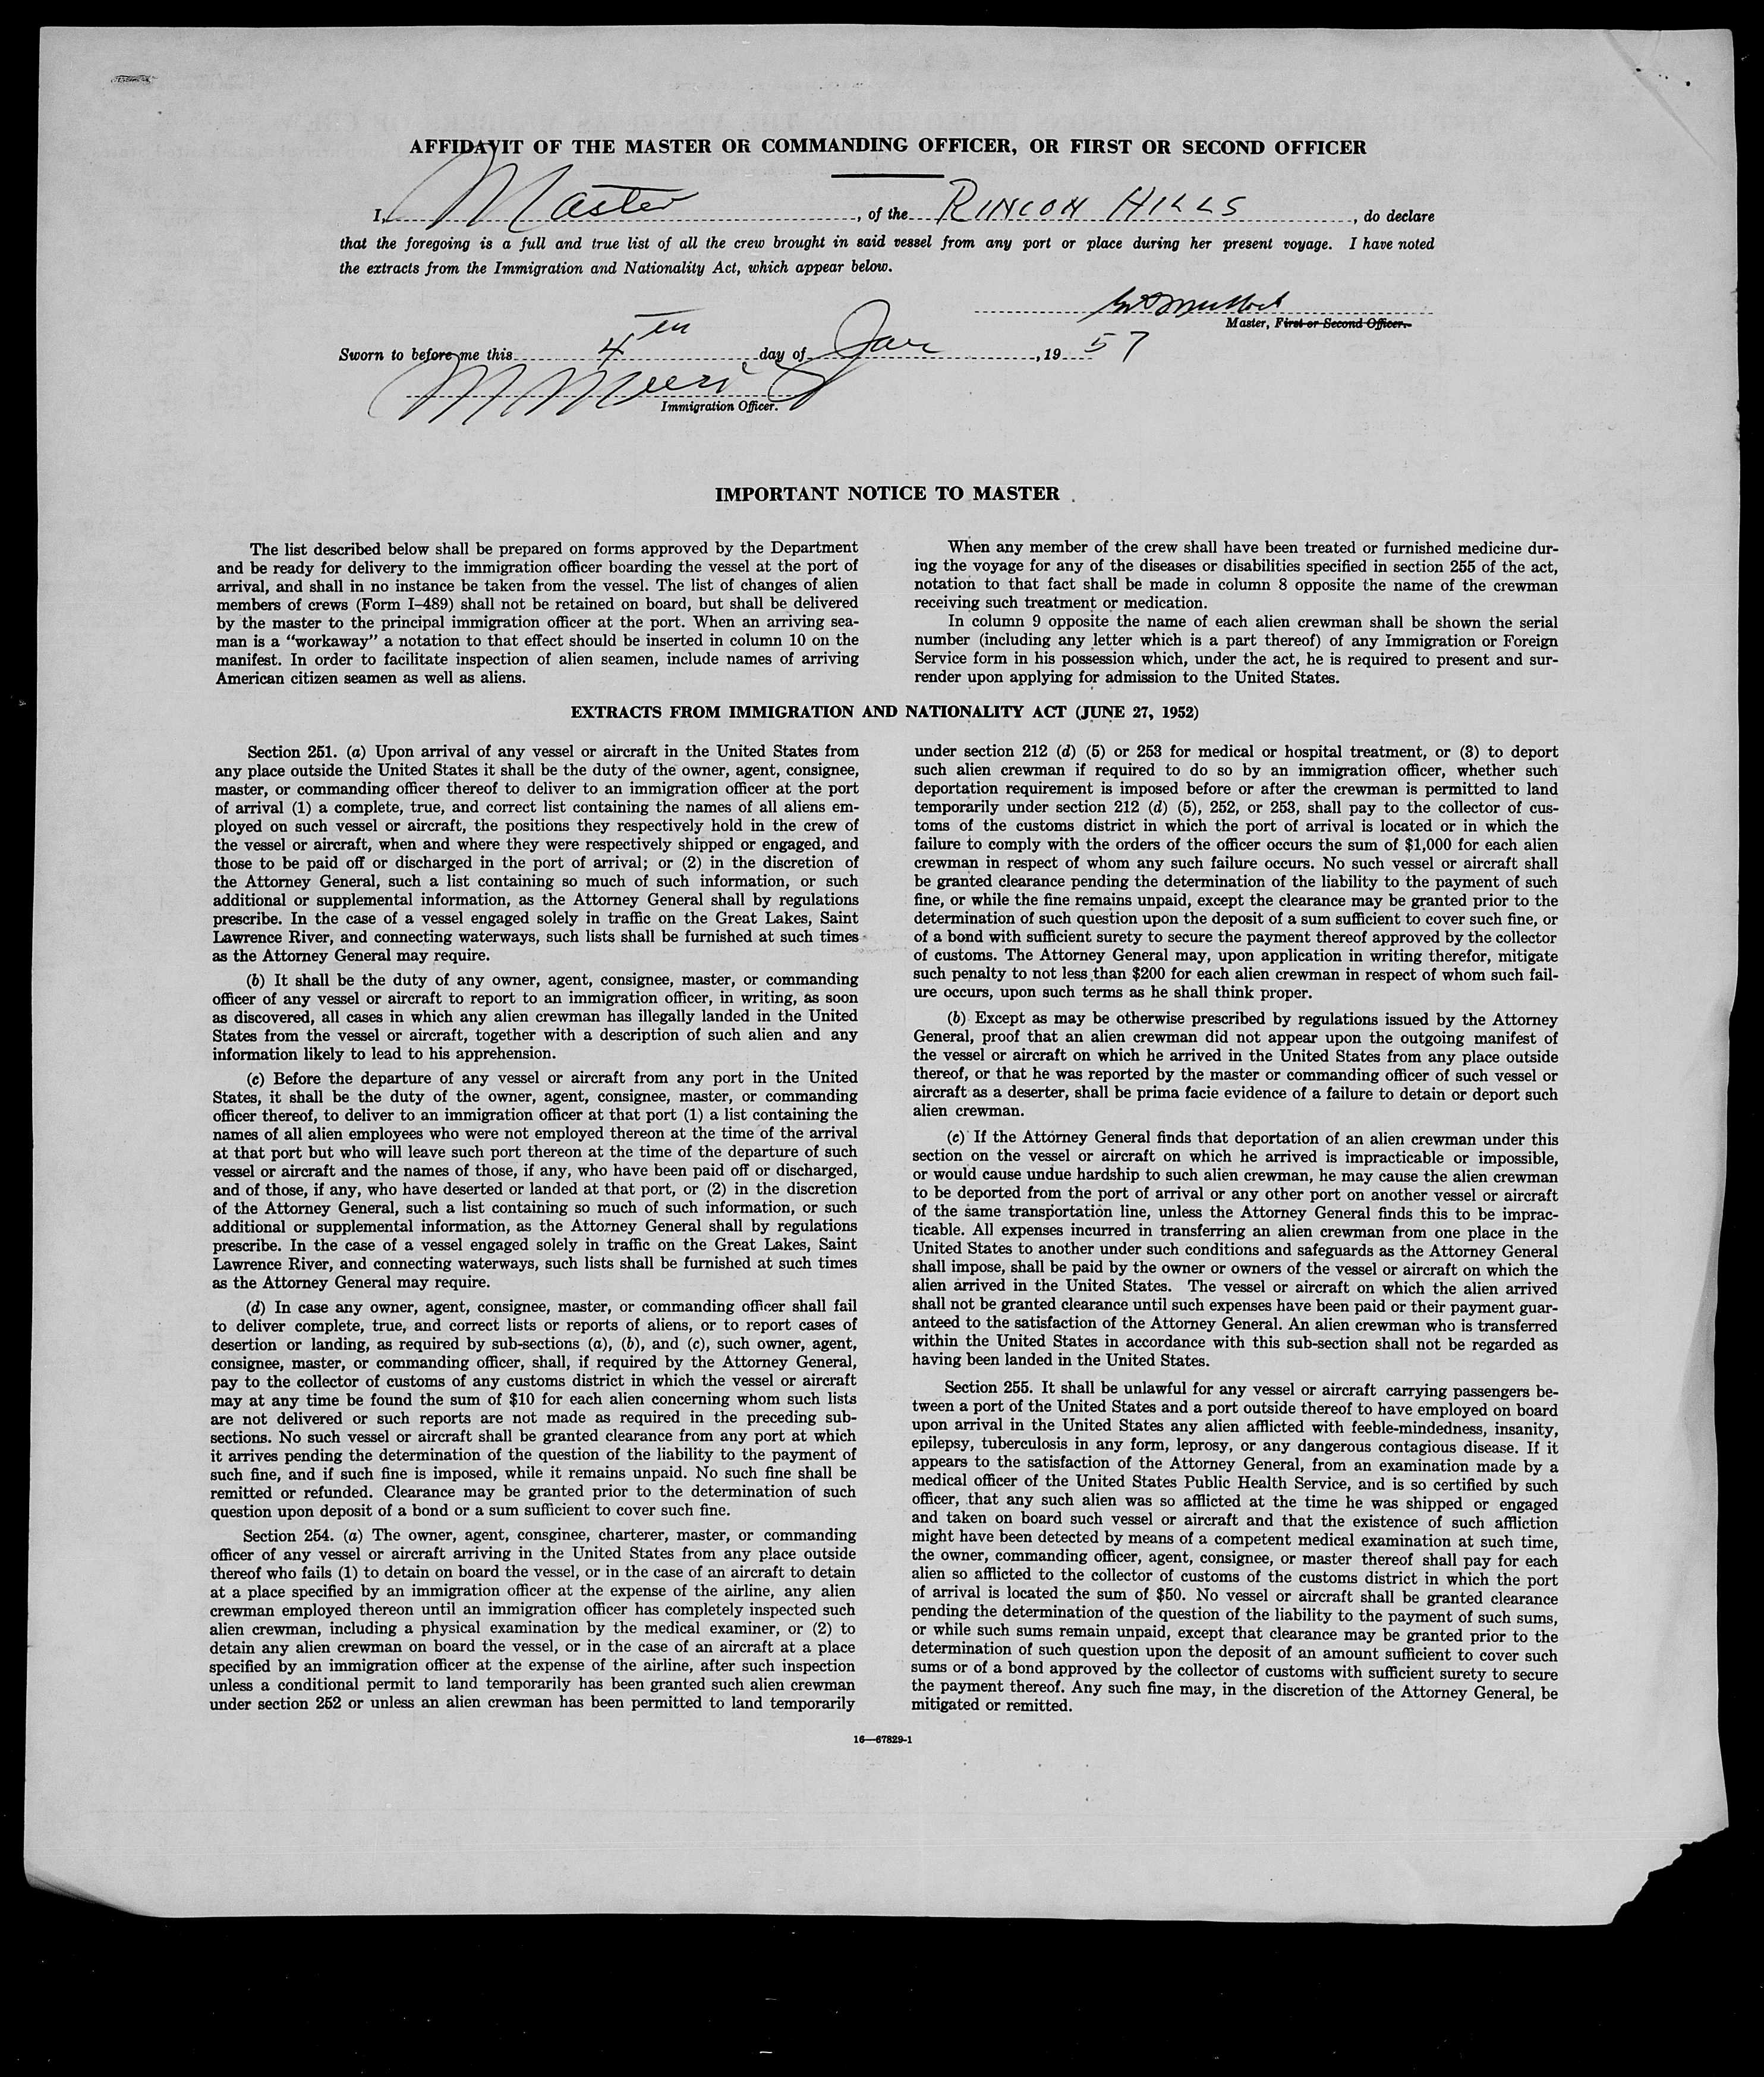 AFFIDAVIT OF THE MASTER OR COMMANDING OFFICER, OR FIRST OR SECOND OFFICER
I, Master, of the RINCON HILLS, do declare
that the foregoing is a full and true list of all the crew brought in said vessel from any port or place during her present voyage. I have noted
the extracts from the Immigration and Nationality Act, which appear below.
Master, First or Second Officer.
Sworn to before me this 4th day of Jan, 19 57
Immigration Officer.
IMPORTANT NOTICE TO MASTER
The list described below shall be prepared on forms approved by the Department
and be ready for delivery to the immigration officer boarding the vessel at the port of
arrival, and shall in no instance be taken from the vessel. The list of changes of alien
members of crews (Form I–489) shall not be retained on board, but shall be delivered
by the master to the principal immigration officer at the port. When an arriving sea-
man is a “workaway” a notation to that effect should be inserted in column 10 on the
manifest. In order to facilitate inspection of alien seamen, include names of arriving
American citizen seamen as well as aliens.
When any member of the crew shall have been treated or furnished medicine dur-
ing the voyage for any of the diseases or disabilities specified in section 255 of the act,
notation to that fact shall be made in column 8 opposite the name of the crewman
receiving such treatment or medication.
In column 9 opposite the name of each alien crewman shall be shown the serial
number (including any letter which is a part thereof) of any Immigration or Foreign
Service form in his possession which, under the act, he is required to present and sur-
render upon applying for admission to the United States.
EXTRACTS FROM IMMIGRATION AND NATIONALITY ACT (JUNE 27, 1952)
Section 251. (a) Upon arrival of any vessel or aircraft in the United States from
any place outside the United States it shall be the duty of the owner, agent, consignee,
master, or commanding officer thereof to deliver to an immigration officer at the port
of arrival (1) a complete, true, and correct list containing the names of all aliens em-
ployed on such vessel or aircraft, the positions they respectively hold in the crew of
the vessel or aircraft, when and where they were respectively shipped or engaged, and
those to be paid off or discharged in the port of arrival; or (2) in the discretion of
the Attorney General, such a list containing so much of such information, or such
additional or supplemental information, as the Attorney General shall by regulations
prescribe. In the case of a vessel engaged solely in traffic on the Great Lakes, Saint
Lawrence River, and connecting waterways, such lists shall be furnished at such times
as the Attorney General may require.
(b) It shall be the duty of any owner, agent, consignee, master, or commanding
officer of any vessel or aircraft to report to an immigration officer, in writing, as soon
as discovered, all cases in which any alien crewman has illegally landed in the United
States from the vessel or aircraft, together with a description of such alien and any
information likely to lead to his apprehension.
(c) Before the departure of any vessel or aircraft from any port in the United
States, it shall be the duty of the owner, agent, consignee, master, or commanding
officer thereof, to deliver to an immigration officer at that port (1) a list containing the
names of all alien employees who were not employed thereon at the time of the arrival
at that port but who will leave such port thereon at the time of the departure of such
vessel or aircraft and the names of those, if any, who have been paid off or discharged,
and of those, if any, who have deserted or landed at that port, or (2) in the discretion
of the Attorney General, such a list containing so much of such information, or such
additional or supplemental information, as the Attorney General shall by regulations
prescribe. In the case of a vessel engaged solely in traffic on the Great Lakes, Saint
Lawrence River, and connecting waterways, such lists shall be furnished at such times
as the Attorney General may require.
(d) In case any owner, agent, consignee, master, or commanding officer shall fail
to deliver complete, true, and correct lists or reports of aliens, or to report cases of
desertion or landing, as required by sub-sections (a), (b), and (c), such owner, agent,
consignee, master, or commanding officer, shall, if required by the Attorney General,
pay to the collector of customs of any customs district in which the vessel or aircraft
may at any time be found the sum of $10 for each alien concerning whom such lists
are not delivered or such reports are not made as required in the preceding sub-
sections. No such vessel or aircraft shall be granted clearance from any port at which
it arrives pending the determination of the question of the liability to the payment of
such fine, and if such fine is imposed, while it remains unpaid. No such fine shall be
remitted or refunded. Clearance may be granted prior to the determination of such
question upon deposit of a bond or a sum sufficient to cover such fine.
Section 254. (a) The owner, agent, consginee, charterer, master, or commanding
officer of any vessel or aircraft arriving in the United States from any place outside
thereof who fails (1) to detain on board the vessel, or in the case of an aircraft to detain
at a place specified by an immigration officer at the expense of the airline, any alien
crewman employed thereon until an immigration officer has completely inspected such
alien crewman, including a physical examination by the medical examiner, or (2) to
detain any alien crewman on board the vessel, or in the case of an aircraft at a place
specified by an immigration officer at the expense of the airline, after such inspection
unless a conditional permit to land temporarily has been granted such alien crewman
under section 252 or unless an alien crewman has been permitted to land temporarily
under section 212 (d) (5) or 253 for medical or hospital treatment, or (3) to deport
such alien crewman if required to do so by an immigration officer, whether such
deportation requirement is imposed before or after the crewman is permitted to land
temporarily under section 212 (d) (5), 252, or 253, shall pay to the collector of cus-
toms of the customs district in which the port of arrival is located or in which the
failure to comply with the orders of the officer occurs the sum of $1,000 for each alien
crewman in respect of whom any such failure occurs. No such vessel or aircraft shall
be granted clearance pending the determination of the liability to the payment of such
fine, or while the fine remains unpaid, except the clearance may be granted prior to the
determination of such question upon the deposit of a sum sufficient to cover such fine, or
of a bond with sufficient surety to secure the payment thereof approved by the collector
of customs. The Attorney General may, upon application in writing therefor, mitigate
such penalty to not less than $200 for each alien crewman in respect of whom such fail-
ure occurs, upon such terms as he shall think proper.
(b) Except as may be otherwise prescribed by regulations issued by the Attorney
General, proof that an alien crewman did not appear upon the outgoing manifest of
the vessel or aircraft on which he arrived in the United States from any place outside
thereof, or that he was reported by the master or commanding officer of such vessel or
aircraft as a deserter, shall be prima facie evidence of a failure to detain or deport such
alien crewman.
(c) If the Attorney General finds that deportation of an alien crewman under this
section on the vessel or aircraft on which he arrived is impracticable or impossible,
or would cause undue hardship to such alien crewman, he may cause the alien crewman
to be deported from the port of arrival or any other port on another vessel or aircraft
of the same transportation line, unless the Attorney General finds this to be imprac-
ticable. All expenses incurred in transferring an alien crewman from one place in the
United States to another under such conditions and safeguards as the Attorney General
shall impose, shall be paid by the owner or owners of the vessel or aircraft on which the
alien arrived in the United States. The vessel or aircraft on which the alien arrived
shall not be granted clearance until such expenses have been paid or their payment guar-
anteed to the satisfaction of the Attorney General. An alien crewman who is transferred
within the United States in accordance with this sub-section shall not be regarded as
having been landed in the United States.
Section 255. It shall be unlawful for any vessel or aircraft carrying passengers be-
tween a port of the United States and a port outside thereof to have employed on board
upon arrival in the United States any alien afflicted with feeble-mindedness, insanity,
epilepsy, tuberculosis in any form, leprosy, or any dangerous contagious disease. If it
appears to the satisfaction of the Attorney General, from an examination made by a
medical officer of the United States Public Health Service, and is so certified by such
officer, that any such alien was so afflicted at the time he was shipped or engaged
and taken on board such vessel or aircraft and that the existence of such affliction
might have been detected by means of a competent medical examination at such time,
the owner, commanding officer, agent, consignee, or master thereof shall pay for each
alien so afflicted to the collector of customs of the customs district in which the port
of arrival is located the sum of $50. No vessel or aircraft shall be granted clearance
pending the determination of the question of the liability to the payment of such sums,
or while such sums remain unpaid, except that clearance may be granted prior to the
determination of such question upon the deposit of an amount sufficient to cover such
sums or of a bond approved by the collector of customs with sufficient surety to secure
the payment thereof. Any such fine may, in the discretion of the Attorney General, be
mitigated or remitted.
16—67829-1